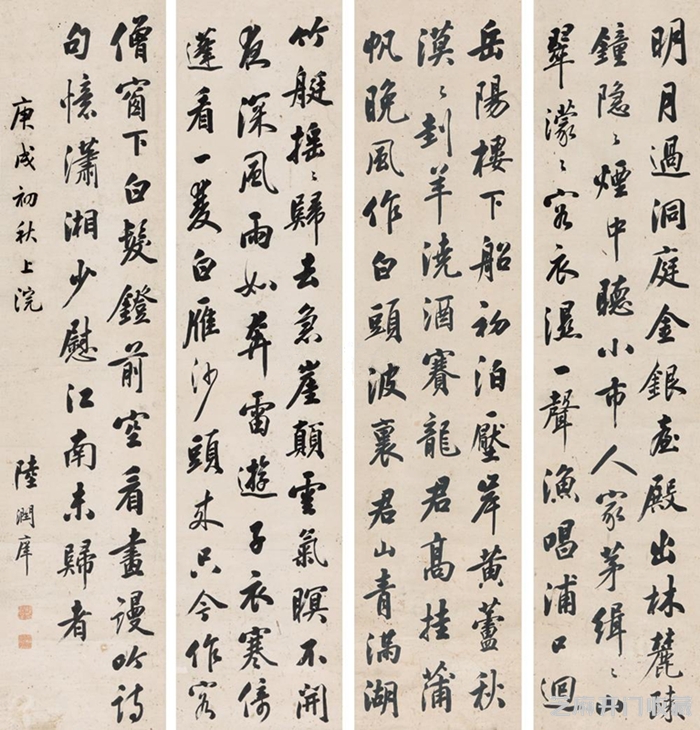 明月過洞庭金銀臺殿出林麓疎
鐘隐〻煙中聽小市人家茅緝〻山
翠濛〻客衣濕一聲漁唱浦口迴
岳陽樓下船初泊壓岸黄蘆秋
漠〻刲羊澆酒賽龍君高挂蒲
帆晚風作白頭波裏君山青滿湖
竹艇摇〻歸去急崖顛雲氣暝不開
夜深風雨如奔雷遊子衣寒倚
蓬看一雙白雁沙頭来只今作客
僧窗下白髮鐙前空看畫謾吟詩
句憶瀟湘少慰江南未歸者
庚戌初秋上浣
陸潤庠